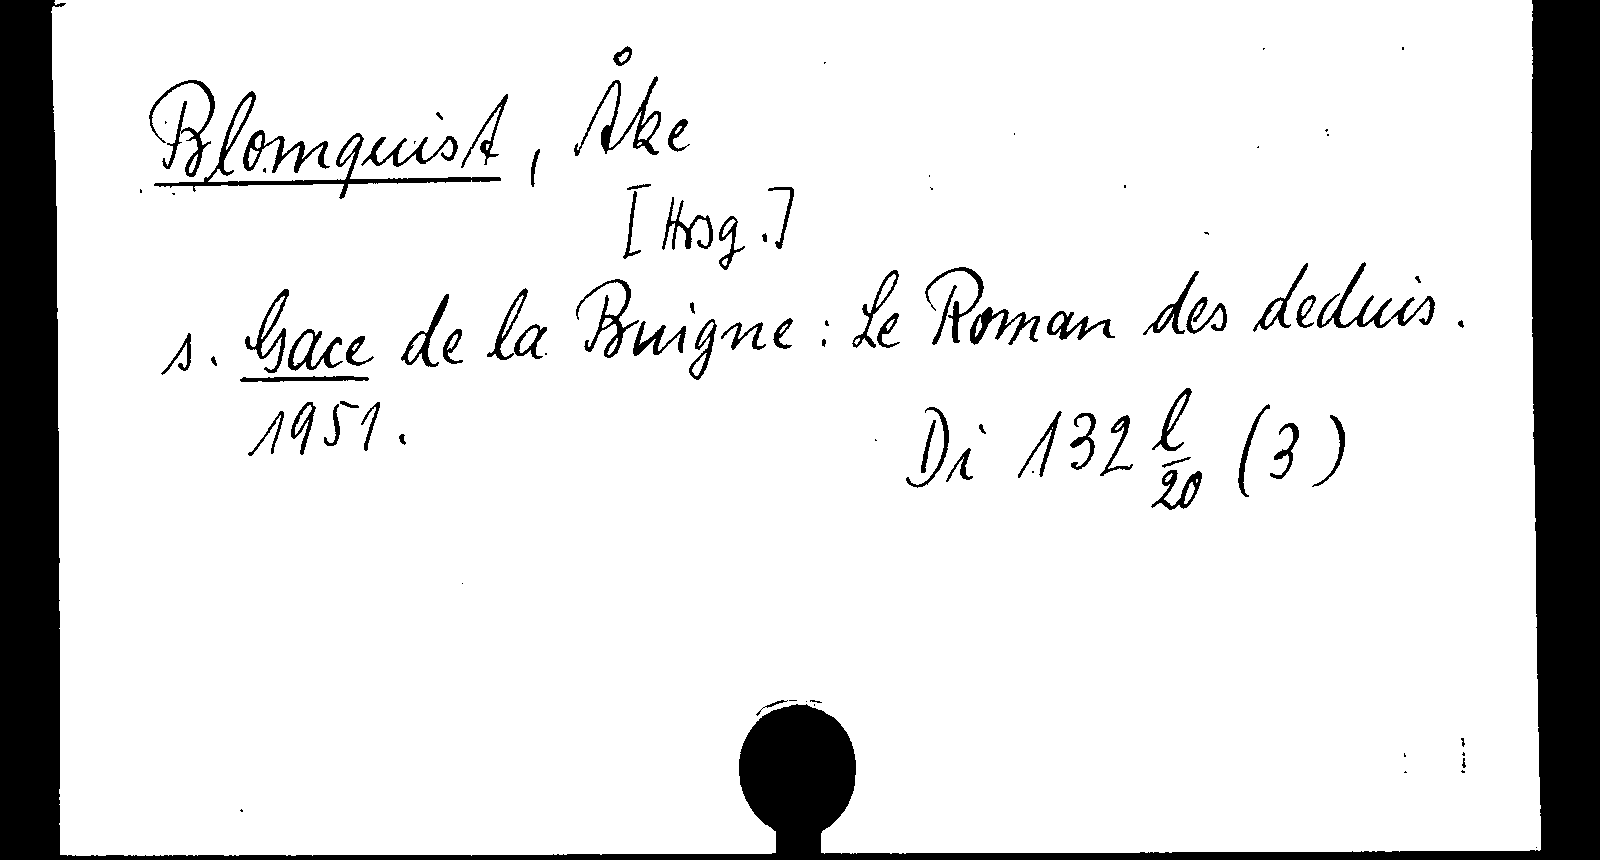 Blomquist, Åke
[Hrsg.]
s. Gace de la Buigne: Le Roman des deduis.
1951.
Di 132 l/20 (3)